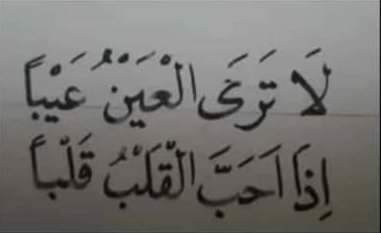 لَا تَرَى الْعَيْنُ عَيْباً
إِذَا اَحَبَّ الْقَلْبُ قَلْباً